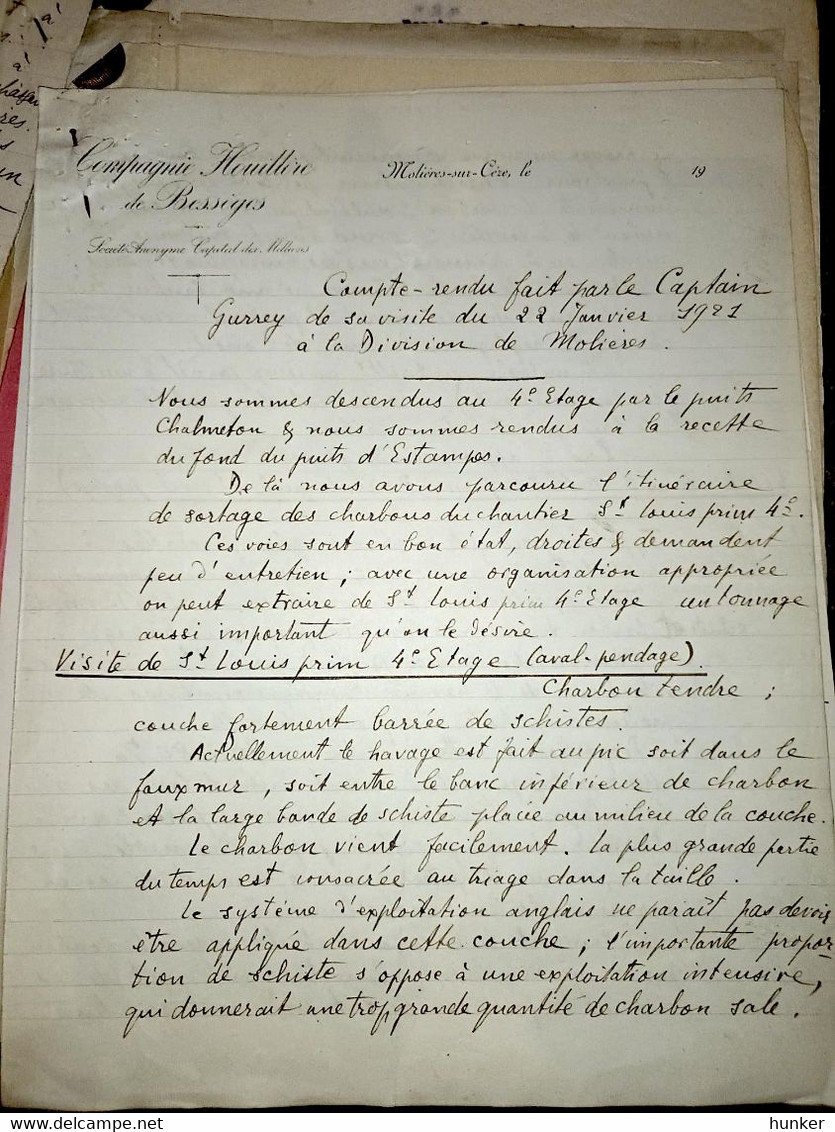 Compagnie Houillère
de Bessèges
Société Anonyme Capital dix Millions
Molières-sur-Cèze, le 19
Compte-rendu fait par le Captain
Gurrey de sa visite du 22 Janvier 1921
à la Division de Molières.
Nous sommes descendus au 4e Etage par le puits
Chalmeton & nous sommes rendus à la recette
du fond du puits d'Estampes.
De là nous avons parcouru l'itinéraire
de sortage des charbons du chantier St Louis prim 4e.
Ces voies sont en bon état, droites & demandent
peu d'entretien ; avec une organisation appropriée
on peut extraire de St Louis prim 4e Etage un tonnage
aussi important qu'on le désire.
Visite de St Louis prim 4e Etage (aval-pendage).
Charbon tendre ;
couche fortement barrée de schistes.
Actuellement le havage est fait au pic soit dans le
faux mur, soit entre le banc inférieur de charbon
et la large bande de schiste placée au milieu de la couche.
Le charbon vient facilement. La plus grande partie
du temps est consacrée au triage dans la taille.
Le système d'exploitation anglais ne paraît pas devoir
être appliqué dans cette couche ; l'importante propor-
tion de schiste s'oppose à une exploitation intensive,
qui donnerait une trop grande quantité de charbon sale.
hunker